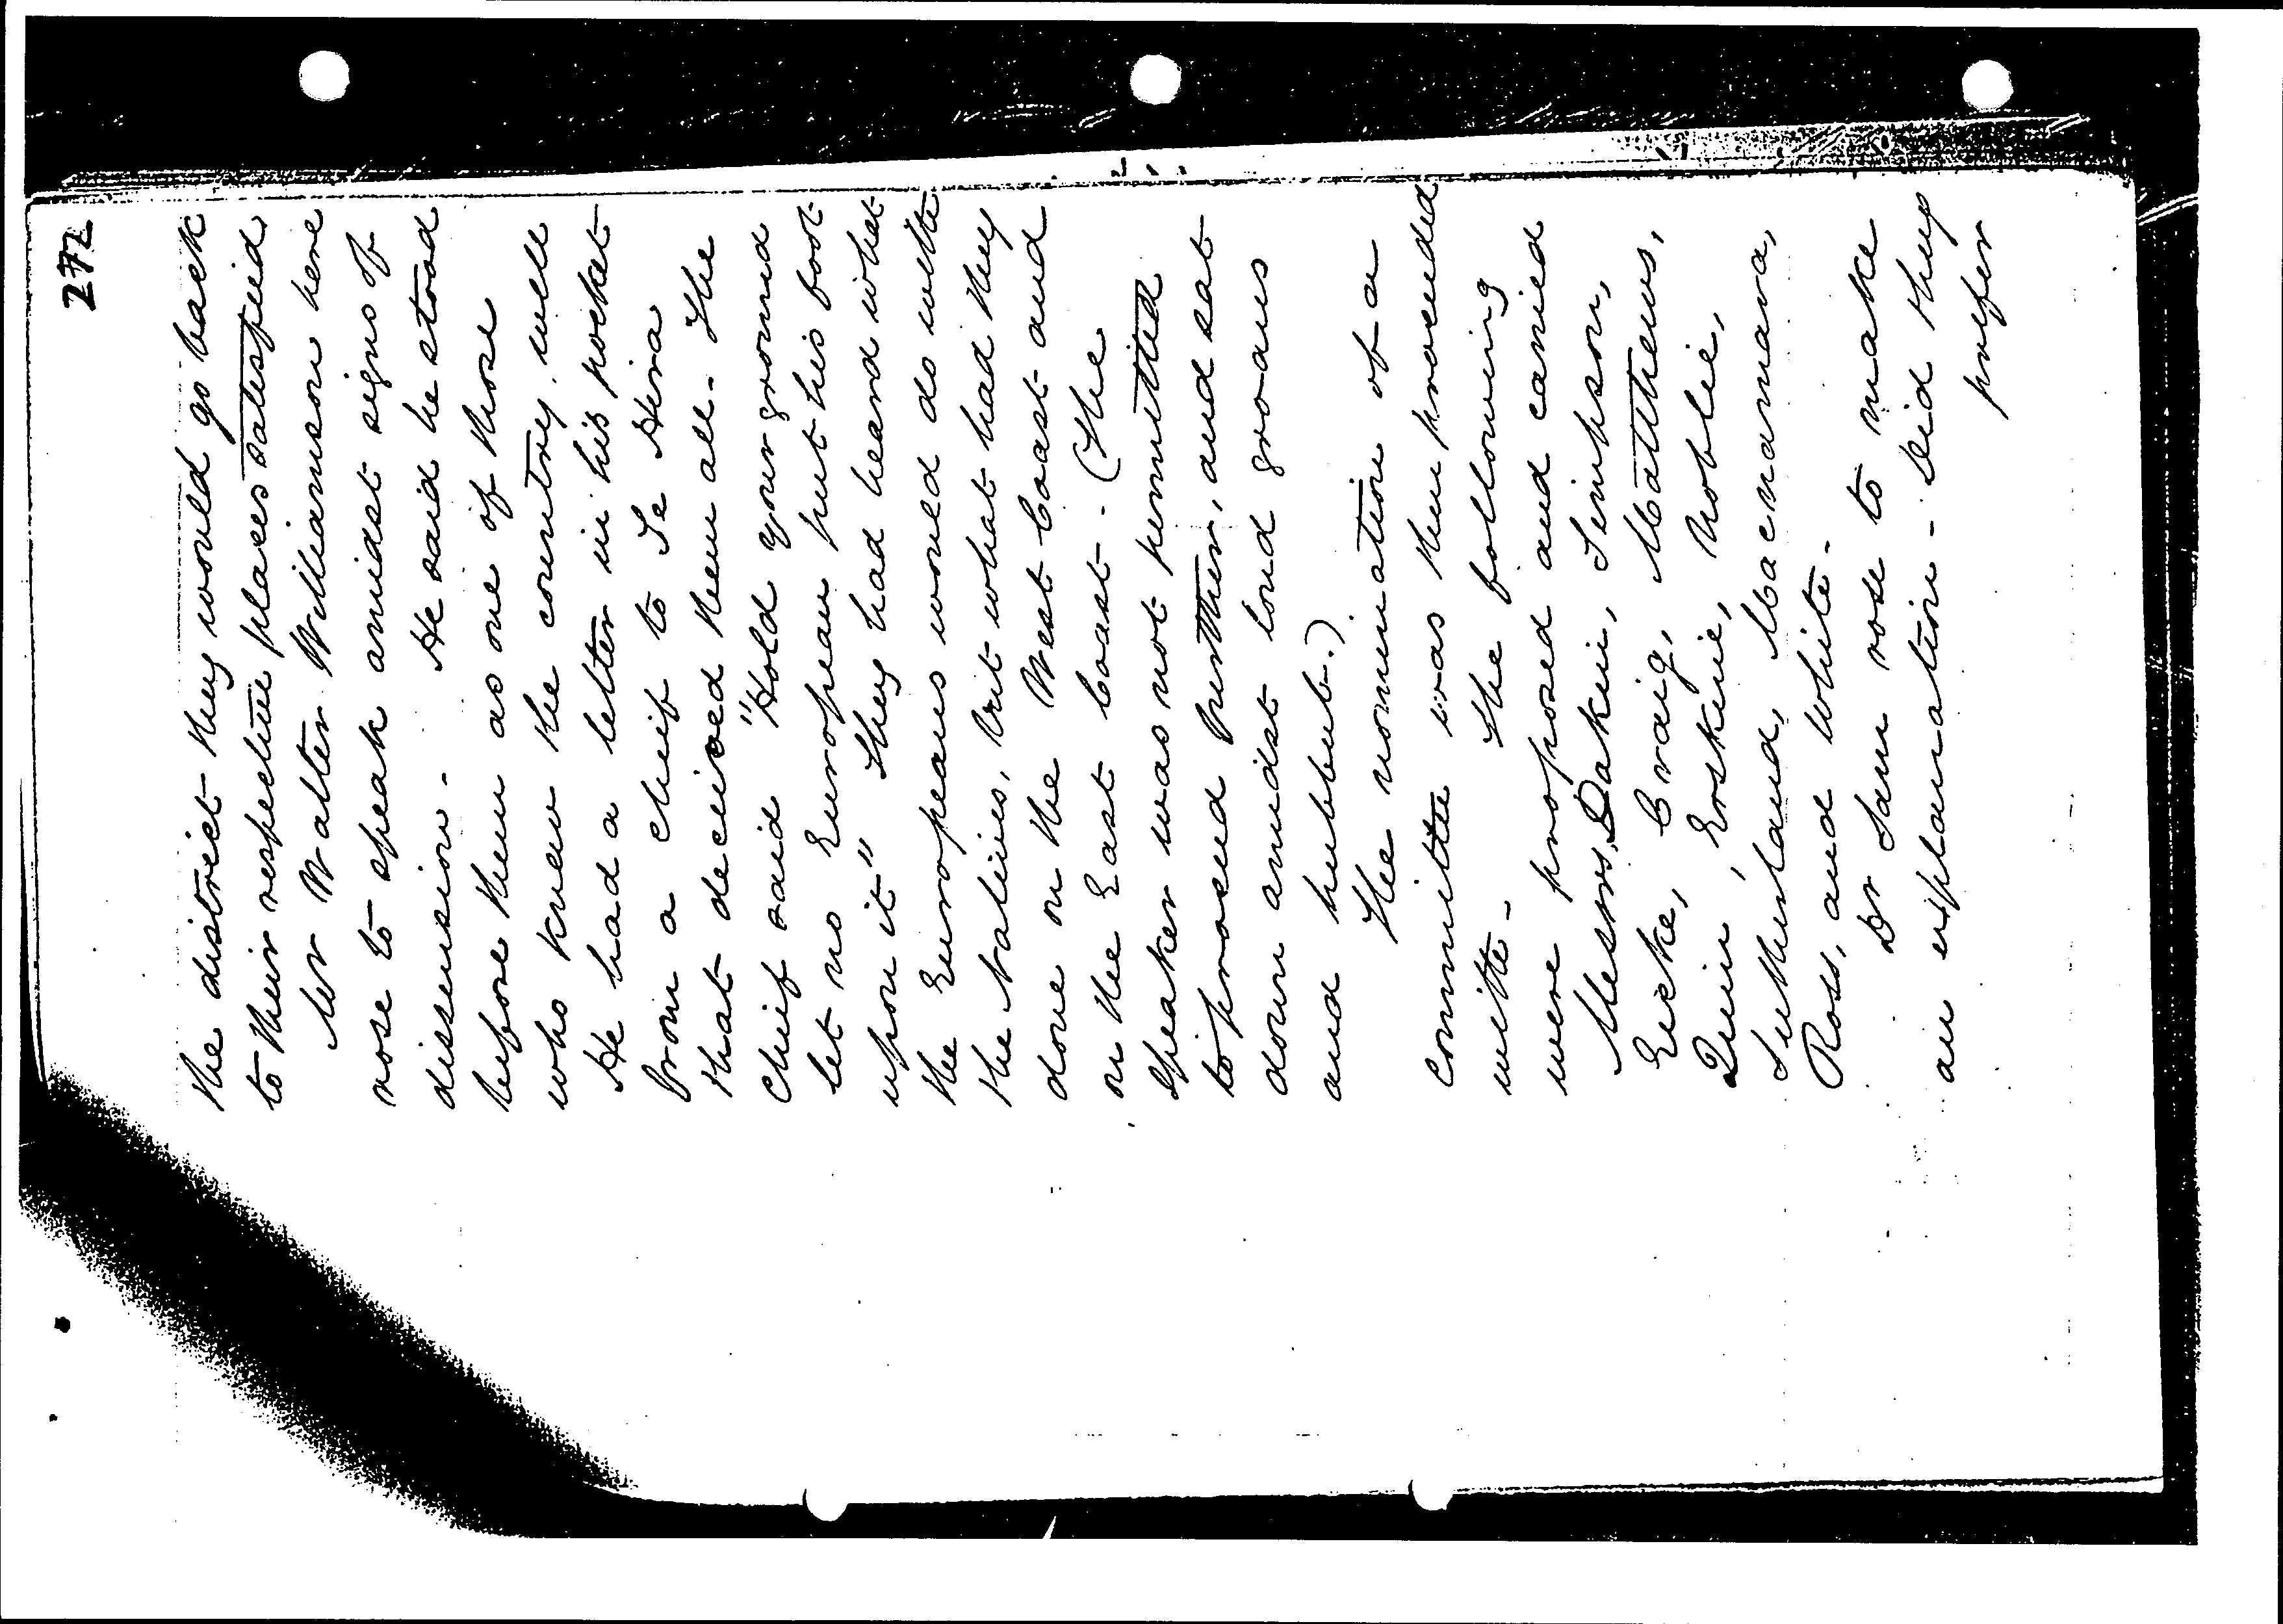 272
the district they would go back
to their respective places satisfied
Mr Walter Williamson here
rose to speak amidst signs of
dissension. He said he stood
before them as one of those
who knew the country well
He had a letter in his pocket
from a chief to Te Hira
that deceived them all. The
chief said "Hold your ground
let no European put his foot
upon it" They had heard what
the Europeans would do with
the Natives, but what had they
done on the West Coast and
on the East Coast. (The
speaker was not permitted
to proceed further, and sat
down amidst loud groans
and hubbub.)
The nomination of a
committee was then proceeded
with. The following
were proposed and carried
Messrs, Dakin, Simpson,
Eicke, Craig, Matthews,
Quin, Erskine, Noble,
Sutherland, Macnamara,
Ross, and White.
Dr Sam rose to make
an explanation. Did they
prefer